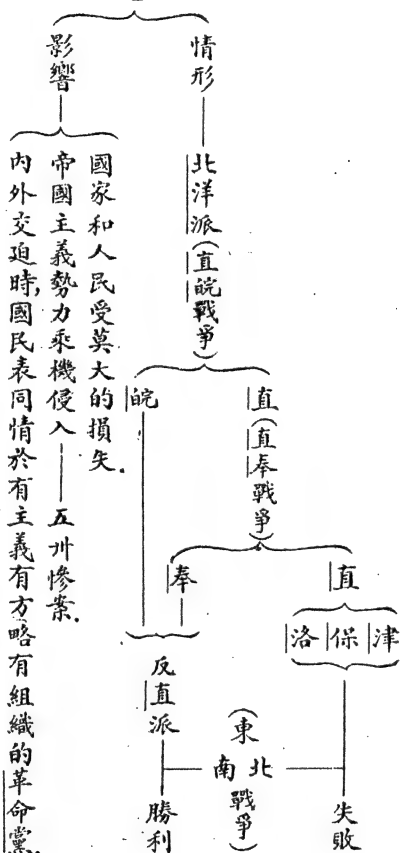 情形
北洋派(直皖戰爭)
直(直奉戰爭)
直
津
保
洛
失敗
奉
皖
反直派
勝利
(東南北戰爭)
影響
國家和人民受莫大的損失.
帝國主義勢力乘機侵入——五卅慘案.
內外交迫時,國民表同情於有主義有方略有組織的革命黨.